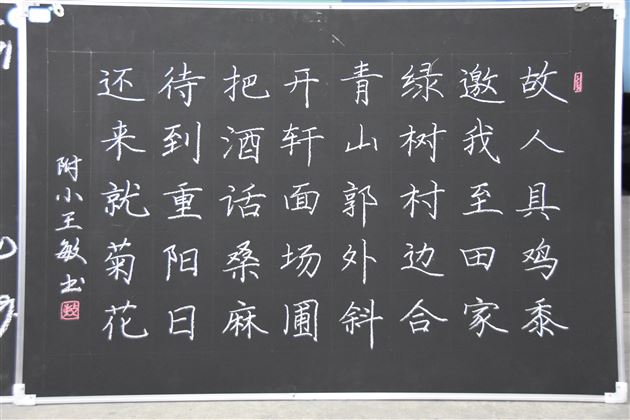 故人具鸡黍
邀我至田家
绿树村边合
青山郭外斜
开轩面场圃
把酒话桑麻
待到重阳日
还来就菊花
附小王敏书